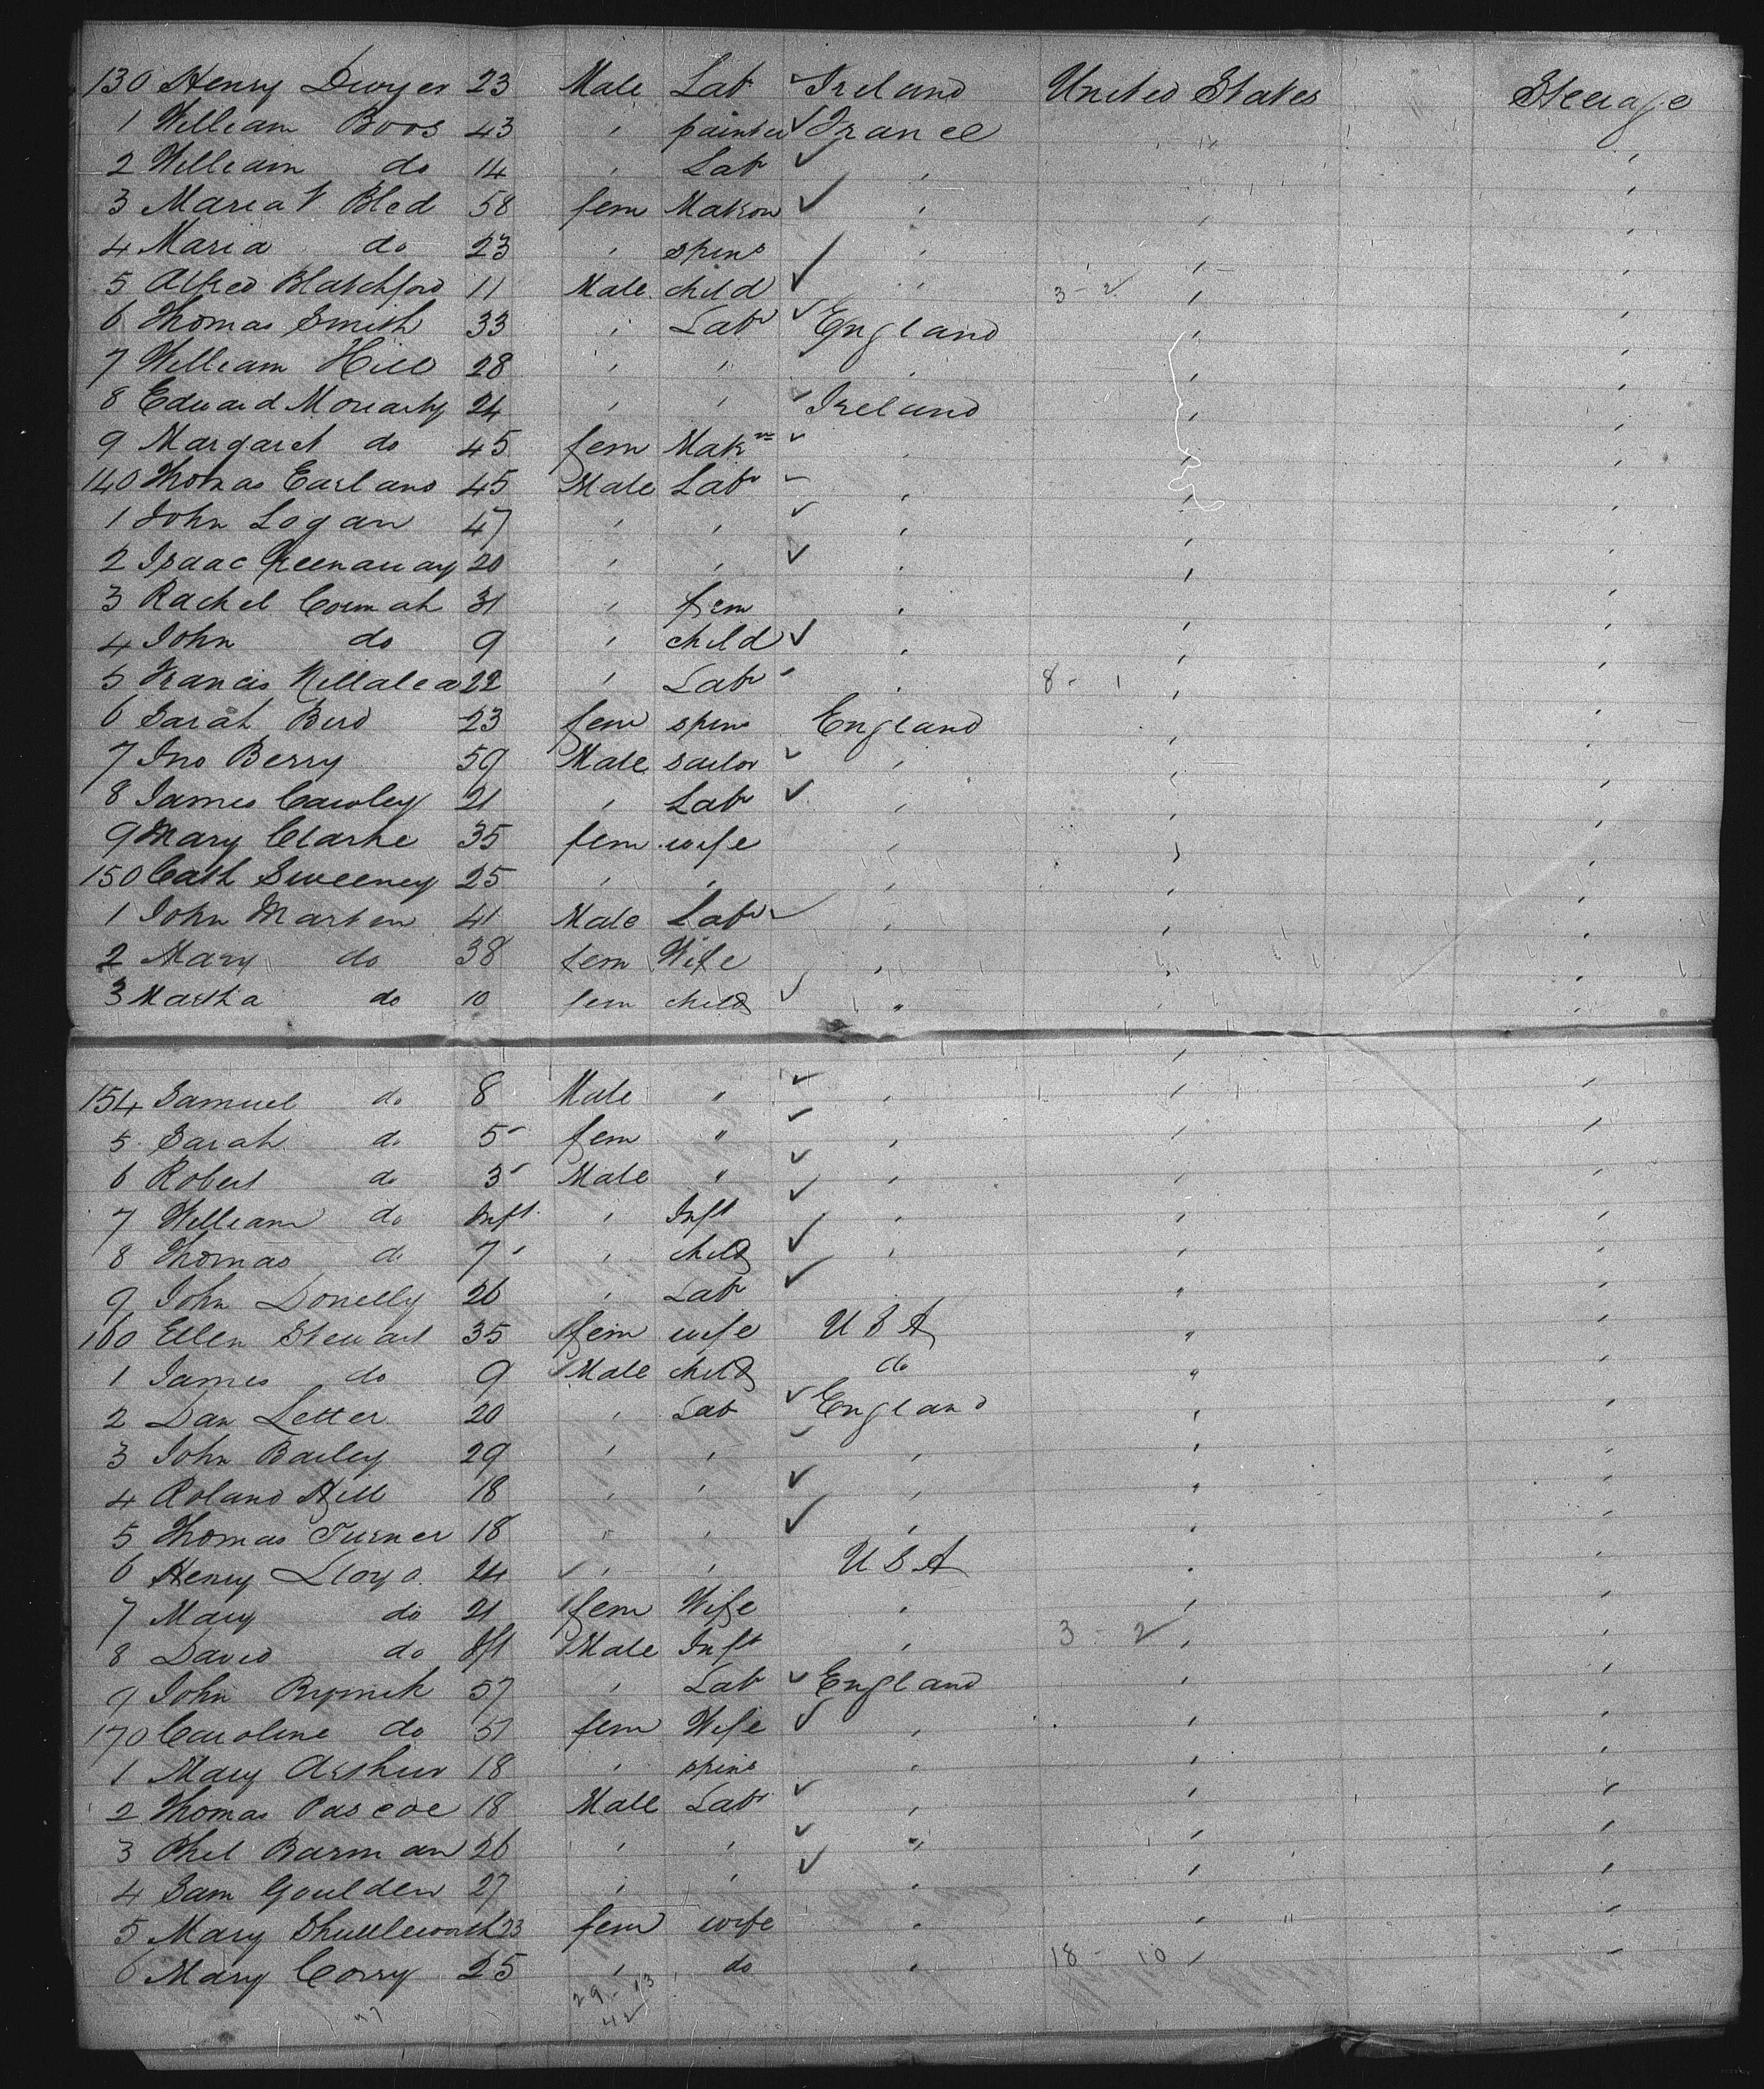 130 Henry Dwyer 23 Male Lab Ireland United States Steerage
1 William Boos 43 ' painter France ' '
2 William do 14 ' Lab ' ' '
3 Maria V Bled 58 fem Matron ' ' '
4 Maria do 23 ' spins ' ' '
5 Alfred Blatchford 11 Male child ' 3-2 ' '
6 Thomas Smith 33 ' Lab England ' '
7 William Hill 28 ' ' ' ' '
8 Edward Moriarty 24 ' ' Ireland ' '
9 Margaret do 45 fem Matn ' ' '
140 Thomas Earland 45 Male Lab ' ' '
1 John Logan 47 ' ' ' ' '
2 Isaac Greenaway 20 ' ' ' ' '
3 Rachel Cormah 31 ' fem ' ' '
4 John do 9 ' child ' ' '
5 Francis Killalea 22 ' Lab ' 8-1 ' '
6 Sarah Bird 23 fem spins England ' '
7 Jno Berry 59 Male sailor ' ' '
8 James Cawley 21 ' Lab ' ' '
9 Mary Clarke 35 fem wife ' ' '
150 Cath Sweeney 25 ' ' ' ' '
1 John Marten 41 Male Lab ' ' '
2 Mary do 38 fem Wife ' ' '
3 Martha do 10 fem child " ' '
154 Samuel do 8 Male " ' ' '
5 Sarah do 5 fem " ' ' '
6 Robert do 3 Male " ' ' '
7 William do Inft ' Inft ' ' '
8 Thomas do 7 ' child ' ' '
9 John Donelly 26 ' Lab ' " '
160 Ellen Stewart 35 fem wife USA " '
1 James do 9 Male child do " '
2 Dan Letter 20 ' Lab England ' '
3 John Bailey 29 ' ' ' ' '
4 Roland Hill 18 ' ' ' ' '
5 Thomas Turner 18 ' ' ' ' '
6 Henry Lloyd 24 ' ' USA ' '
7 Mary do 21 fem Wife ' ' '
8 David do Ift Male Inft ' 3-2 ' '
9 John Rymich 57 ' Lab England ' '
170 Caroline do 51 fem Wife ' ' '
1 Mary Arthur 18 ' spins ' ' '
2 Thomas Pascoe 18 Male Lab ' ' '
3 Phil Barman 26 ' ' " ' '
4 Sam Goulden 27 ' ' ' ' '
5 Mary Shuttleworth 23 fem wife ' ' '
6 Mary Corry 25 ' do ' 18-10 ' '
29-13
42